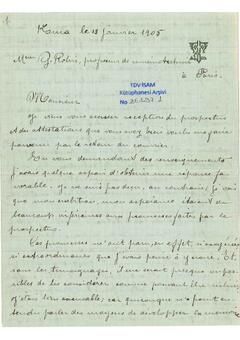 1
Kauia le 18 janvier 1905
Mme G. Robin, professeur de
à Paris.
TDV İSAM
Kütüphanesi Arşivi
No
Monsieur
Je vous accuse réception du prospectus
& des attestations que vous avez bien voulu me faire
parvenir par le retour du courrier.
En vous demandant des renseignements
j'avais quelque espoir d'obtenir une réponse favo-
rable. Je vois
que mon ambition, mon espérance étaient de
beaucoup inférieures aux promesses faites par le
prospectus.
Ces promesses m'ont paru, en effet, si exagérées
si extraordinaires que j'avais peine à y croire. Et,
sans les témoignages, il me serait presque impos-
sible de les considérer comme pouvant être réalisées.
J'étais bien excusable; car quiconque n'a point en-
tendu parler des moyens de développer la mémoire